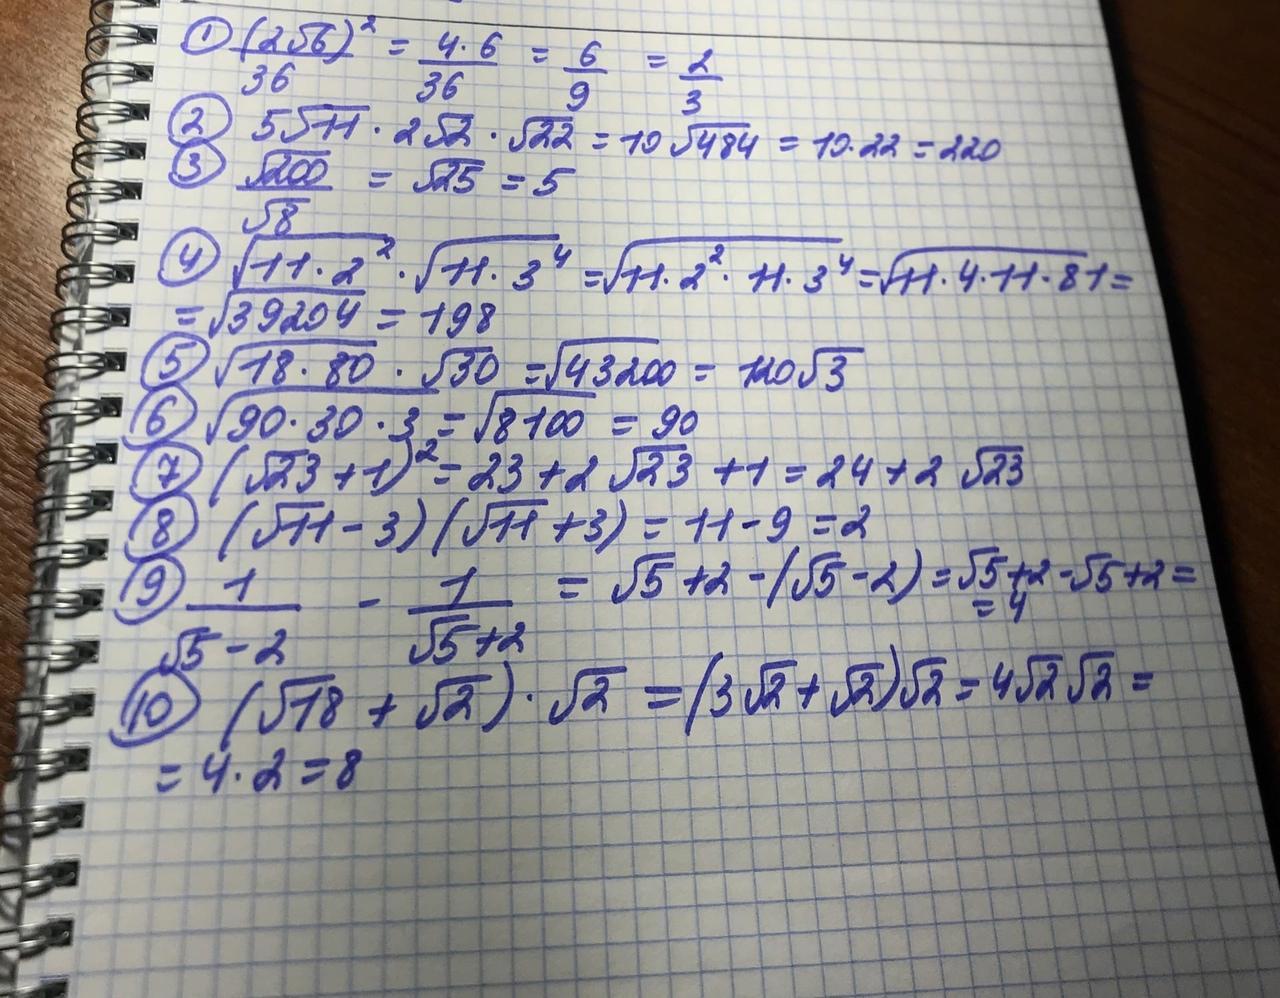 ① (2√6)² / 36 = 4·6 / 36 = 6/9 = 2/3
② 5√11 · 2√2 · √22 = 10√484 = 10·22 = 220
③ √200 / √8 = √25 = 5
④ √11·2² · √11·3⁴ = √11·2²·11·3⁴ = √11·4·11·81 =
= √39204 = 198
⑤ √18·80 · √30 = √43200 = 120√3
⑥ √90·30·3 = √8100 = 90
⑦ (√23+1)² = 23+2√23+1 = 24+2√23
⑧ (√11-3)(√11+3) = 11-9 = 2
⑨ 1/(√5-2) - 1/(√5+2) = √5+2-(√5-2) = √5+2-√5+2 =
= 4
⑩ (√18+√2)·√2 = (3√2+√2)√2 = 4√2√2 =
= 4·2 = 8